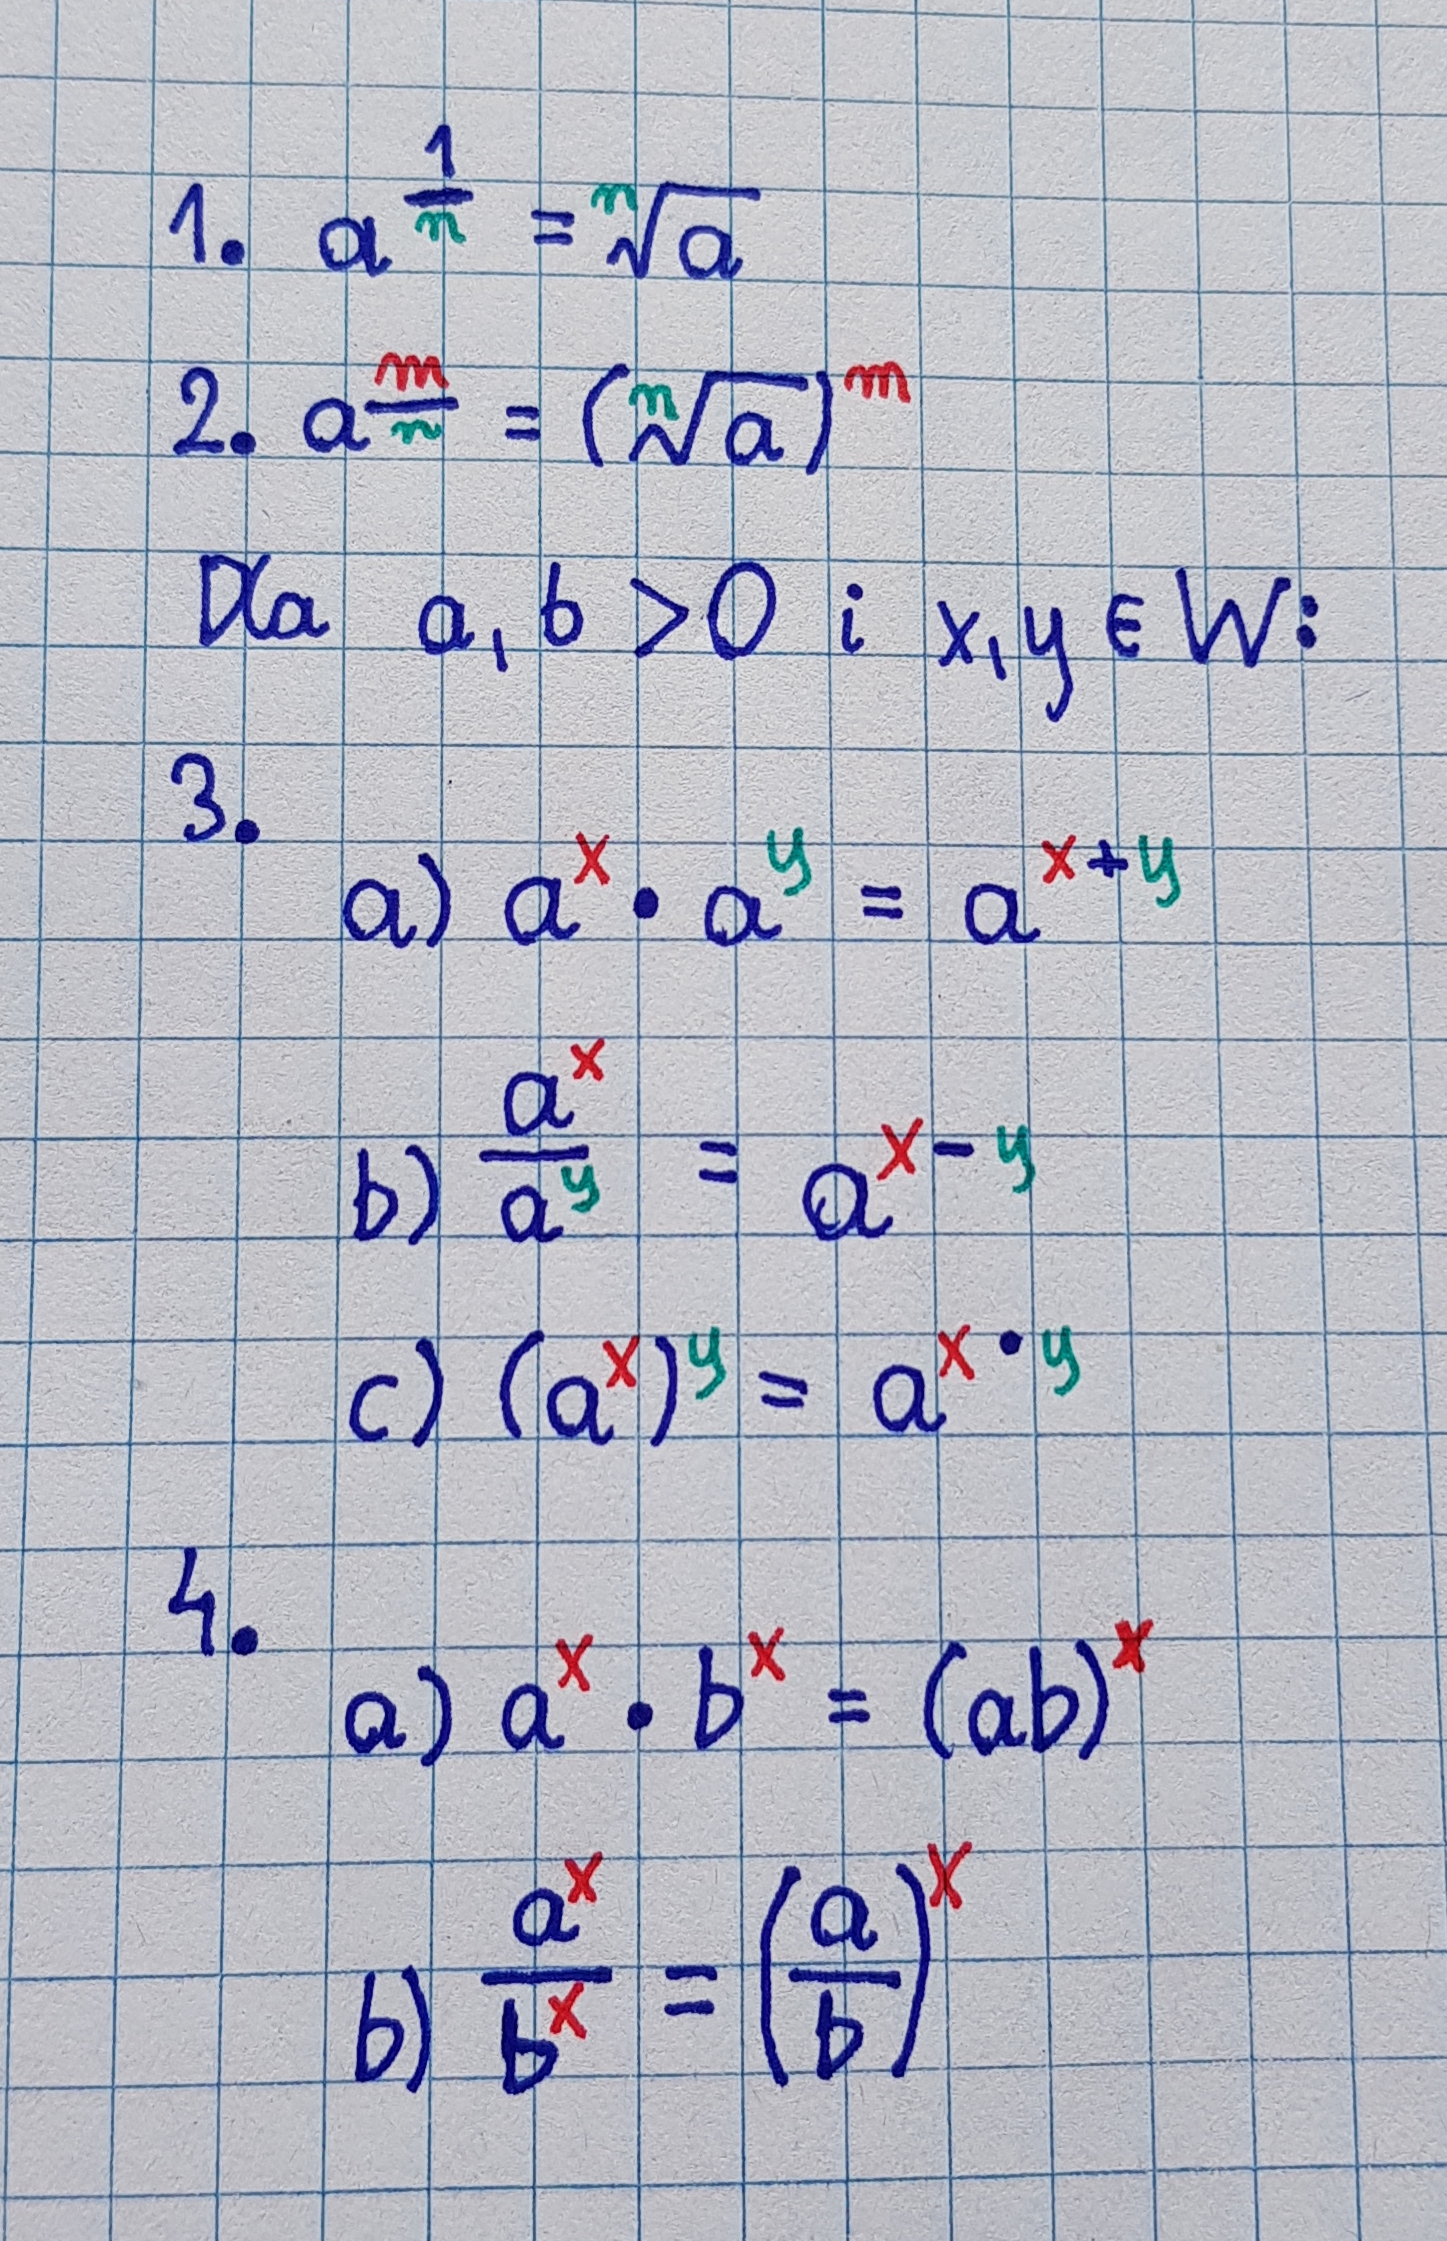 1. a^(1/n) = ⁿ√a
2. a^(m/n) = (ⁿ√a)^m
Dla a, b > 0 i x, y ∈ W:
3.
a) a^x • a^y = a^(x+y)
b) a^x / a^y = a^(x-y)
c) (a^x)^y = a^(x•y)
4.
a) a^x • b^x = (ab)^x
b) a^x / b^x = (a/b)^x